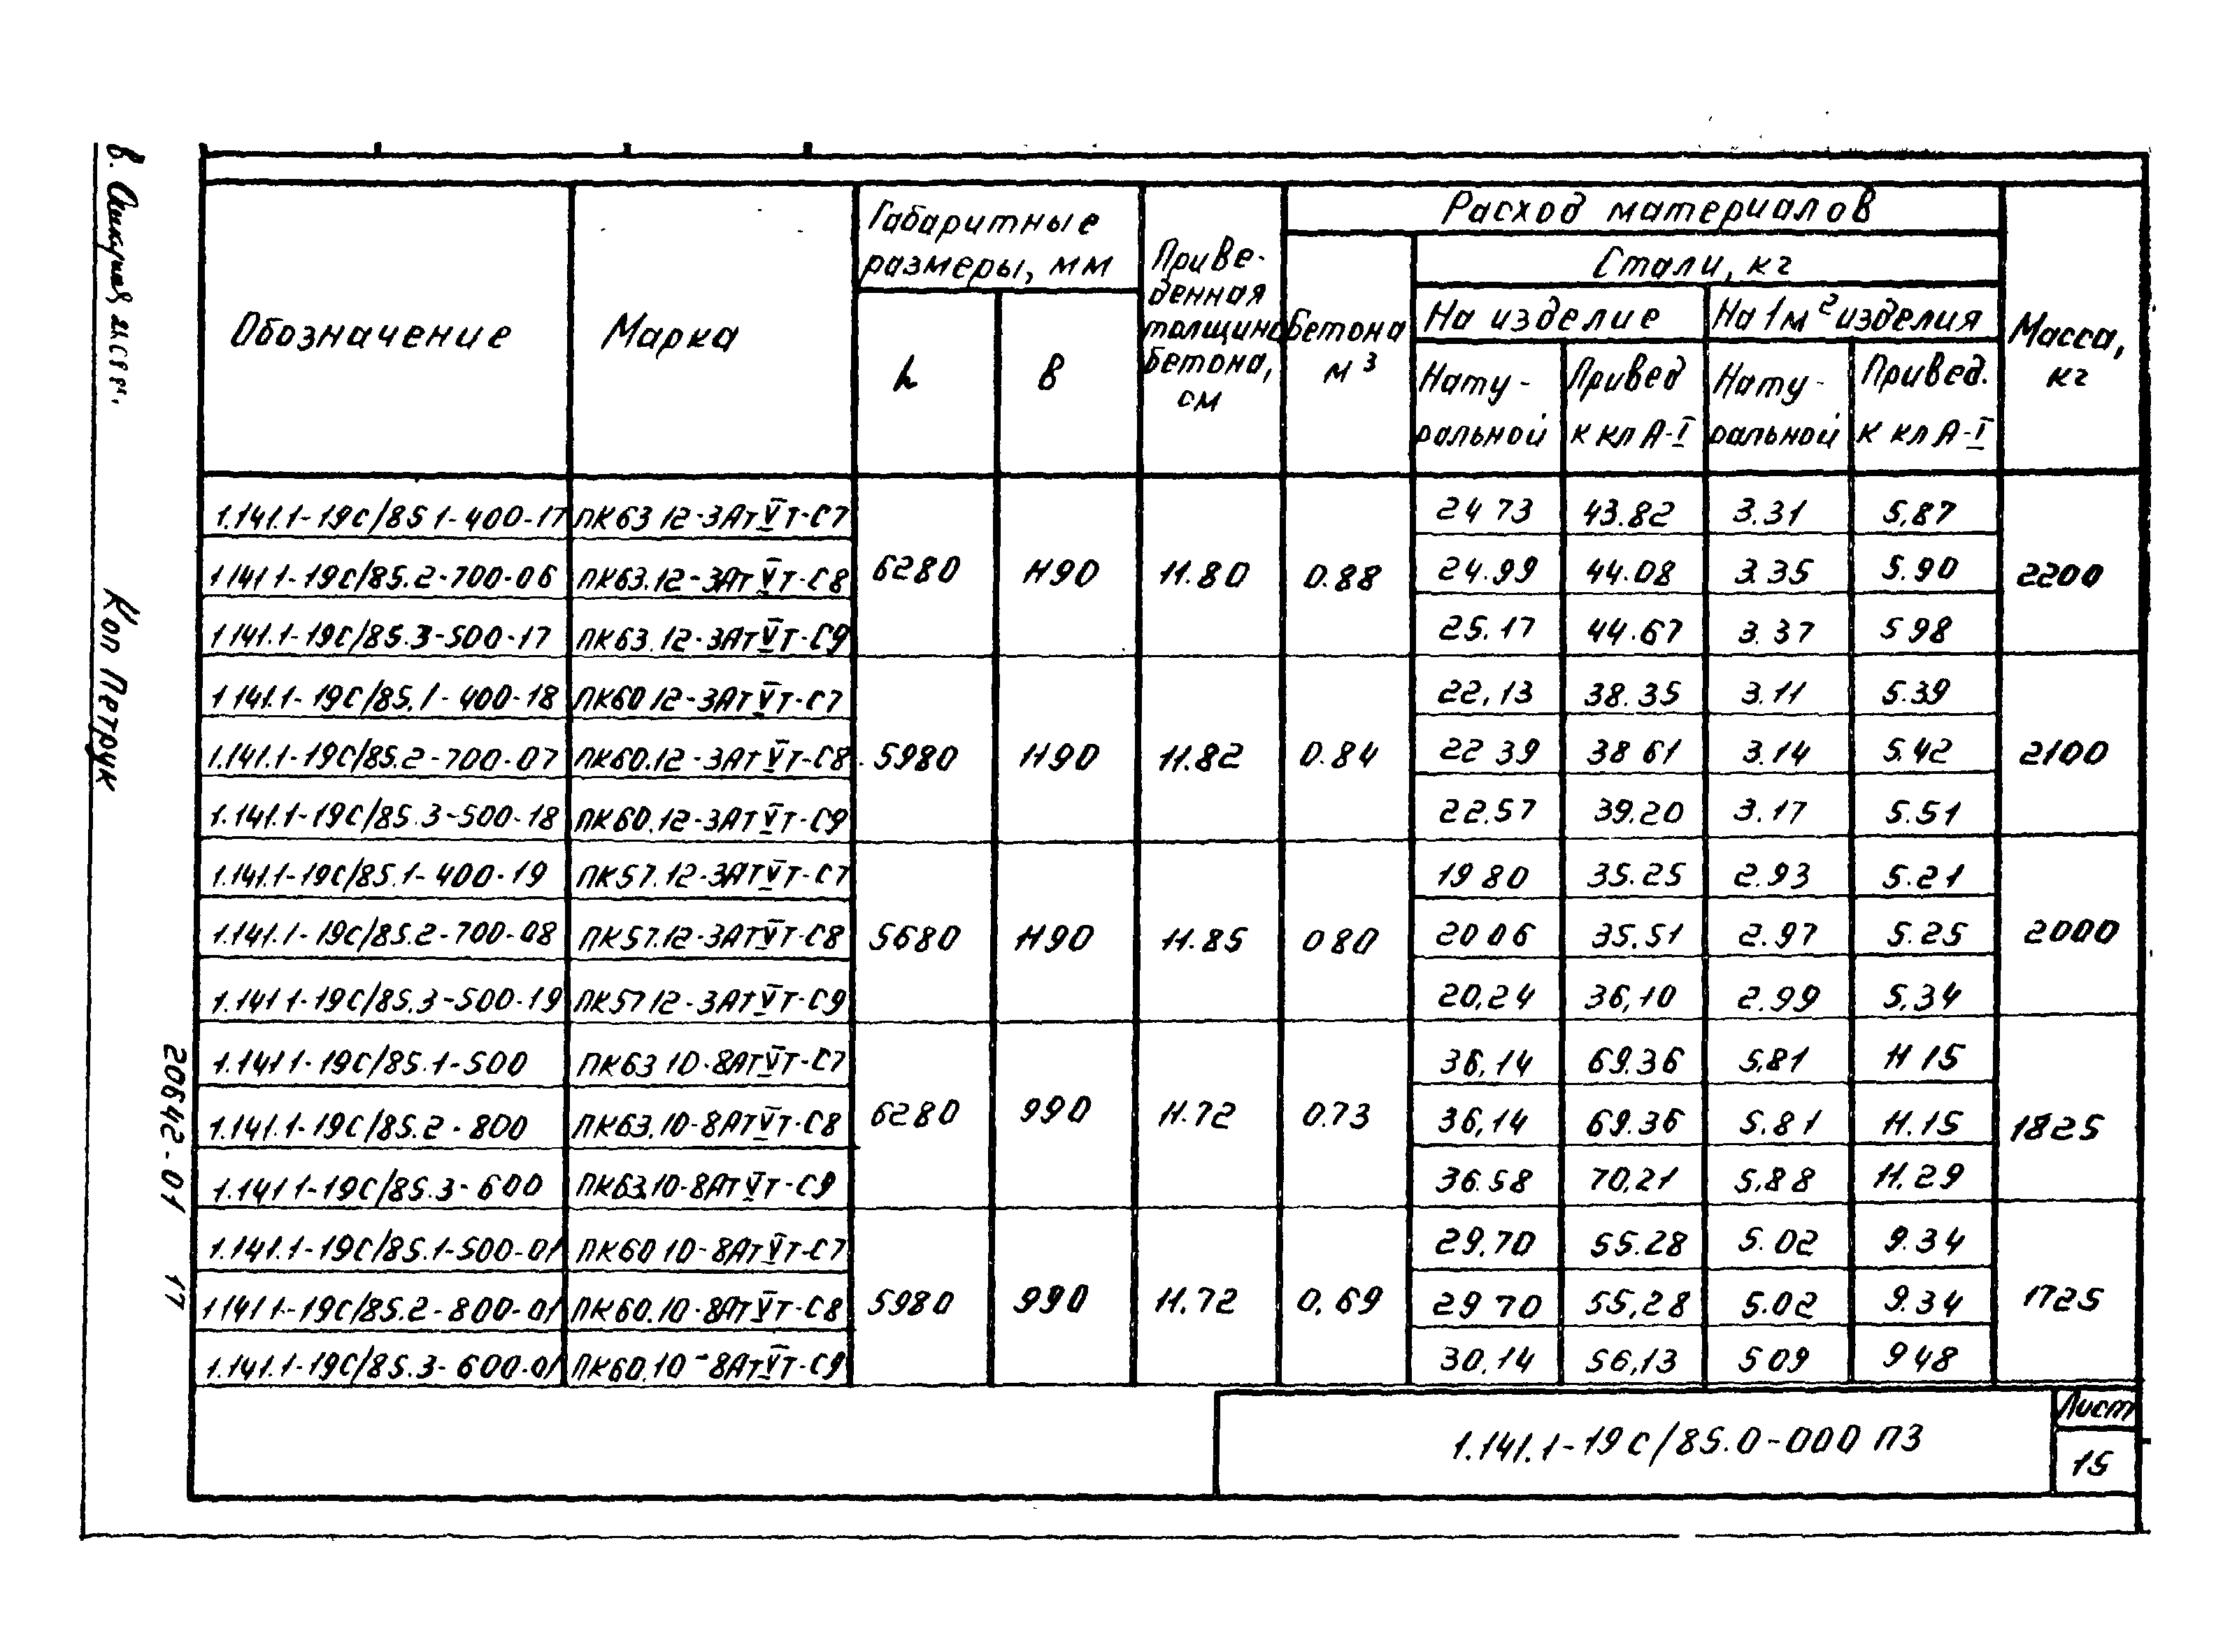 Обозначение Марка Габаритные размеры, мм L B Приве- денная толщина бетона, см Расход материалов Бетона м³ Стали, кг На изделие На 1м² изделия Нату- ральной Привед к кл А-I Нату- ральной Привед. к кл А-I Масса, кг
1.141.1-19с/85 1-400-17 ПК63 12-3АтVТ-С7 6280 1190 11.80 0.88 24 73 43.82 3.31 5,87 2200
1 141 1-19с/85.2-700-06 ПК63.12-3АтVТ-С8 24.99 44.08 3.35 5.90
1 141.1-19с/85.3-500-17 ПК63.12-3АтVТ-С9 25.17 44.67 3.37 5 98
1 141.1-19с/85.1-400-18 ПК60 12-3АтVТ-С7 5980 1190 11.82 0.84 22,13 38.35 3.11 5.39 2100
1.141.1-19с/85.2-700-07 ПК60.12-3АтVТ-С8 22 39 38 61 3.14 5.42
1.141.1-19с/85.3-500-18 ПК60.12-3АтVТ-С9 22.57 39.20 3.17 5.51
1.141.1-19с/85.1-400-19 ПК57.12-3АтVТ-С7 5680 1190 11.85 0 80 19 80 35.25 2.93 5.21 2000
1.141.1-19с/85.2-700-08 ПК57.12-3АтVТ-С8 20 06 35.51 2.97 5.25
1.141 1-19с/85.3-500-19 ПК57 12-3АтVТ-С9 20,24 36,10 2.99 5,34
1.141 1-19с/85.1-500 ПК63 10-8АтVТ-С7 6280 990 11.72 0.73 36,14 69.36 5,81 11 15 1825
1.141.1-19с/85.2-800 ПК63.10-8АтVТ-С8 36,14 69.36 5.81 11.15
1.141 1-19с/85.3-600 ПК63.10-8АтVТ-С9 36.58 70,21 5,88 11.29
1.141.1-19с/85.1-500-01 ПК60 10-8АтVТ-С7 5980 990 11.72 0,69 29.70 55.28 5.02 9.34 1725
1 141 1-19с/85.2-800-01 ПК60.10-8АтVТ-С8 29 70 55,28 5.02 9.34
1.141.1-19с/85.3-600-01 ПК60.10-8АтVТ-С9 30.14 56,13 5 09 9 48
1.141.1-19с/85.0-000 ПЗ
Лист
15
Коп Петрук
20642-01 17